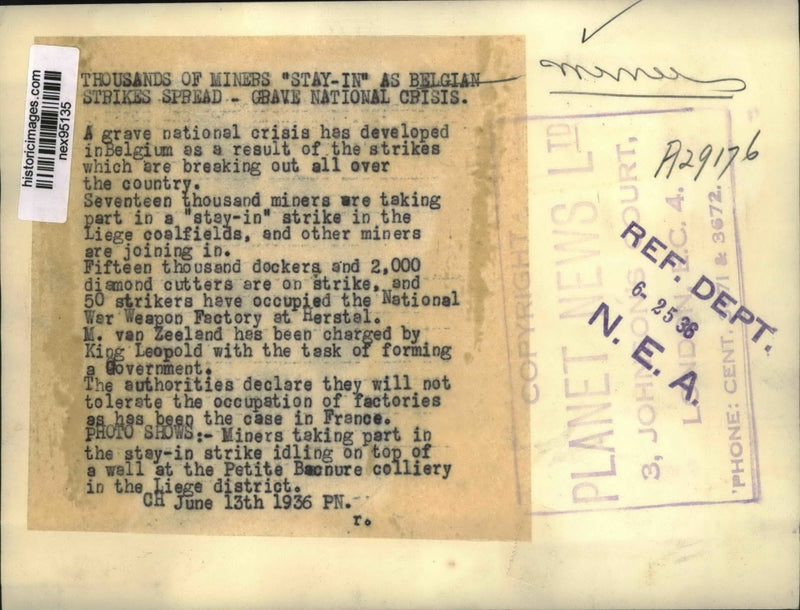 THOUSANDS OF MINERS "STAY-IN" AS BELGIAN
STRIKES SPREAD - GRAVE NATIONAL CRISIS.
A grave national crisis has developed
inBelgium as a result of the strikes
which are breaking out all over
the country.
Seventeen thousand miners are taking
part in a "stay-in" strike in the
Liege coalfields, and other miners
are joining in.
Fifteen thousand dockers and 2,000
diamond cutters are on strike, and
50 strikers have occupied the National
War Weapon Factory at Herstal.
M. van Zeeland has been charged by
King Leopold with the task of forming
a Government.
The authorities declare they will not
tolerate the occupation of factories
as has been the case in France.
PHOTO SHOWS:- Miners taking part in
the stay-in strike idling on top of
a wall at the Petite Bacnure colliery
in the Liege district.
CH June 13th 1936 PN.
r.
historicimages.com
nex95135
A29176
COPYRIGHT
PLANET NEWS LTD
3, JOHNSON'S COURT,
LONDON E.C. 4.
'PHONE: CENT. 71 & 3672.
REF. DEPT.
6-25 36
N. E. A.